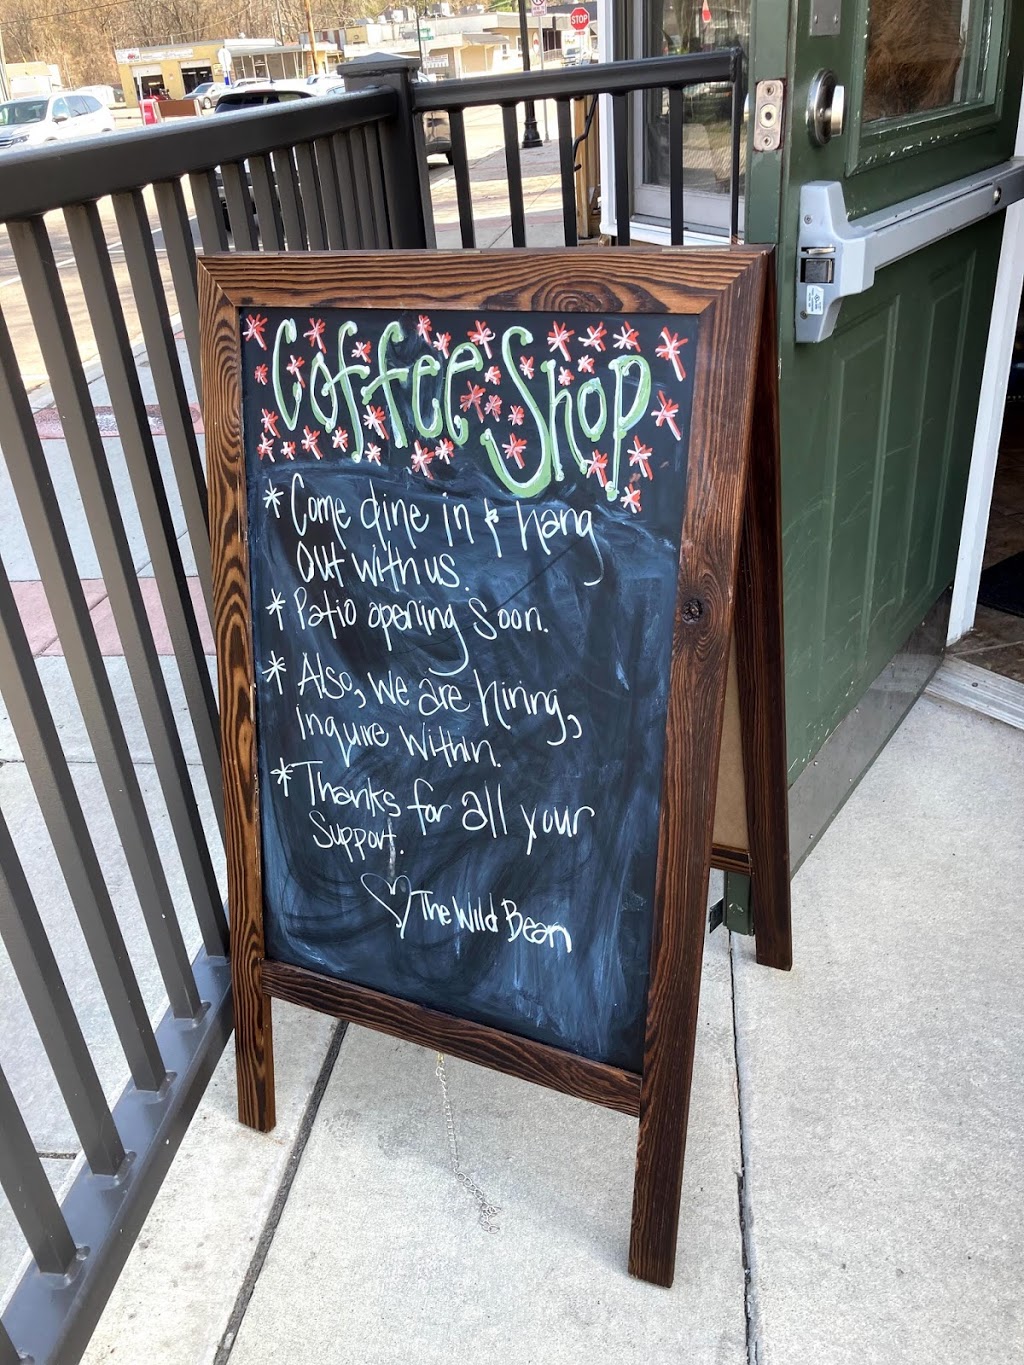 STOP
Coffee Shop
* Come dine in & hang
out with us.
* Patio opening soon.
* Also, we are hiring,
inquire within.
* Thanks for all your
support.
♡ The Wild Bean